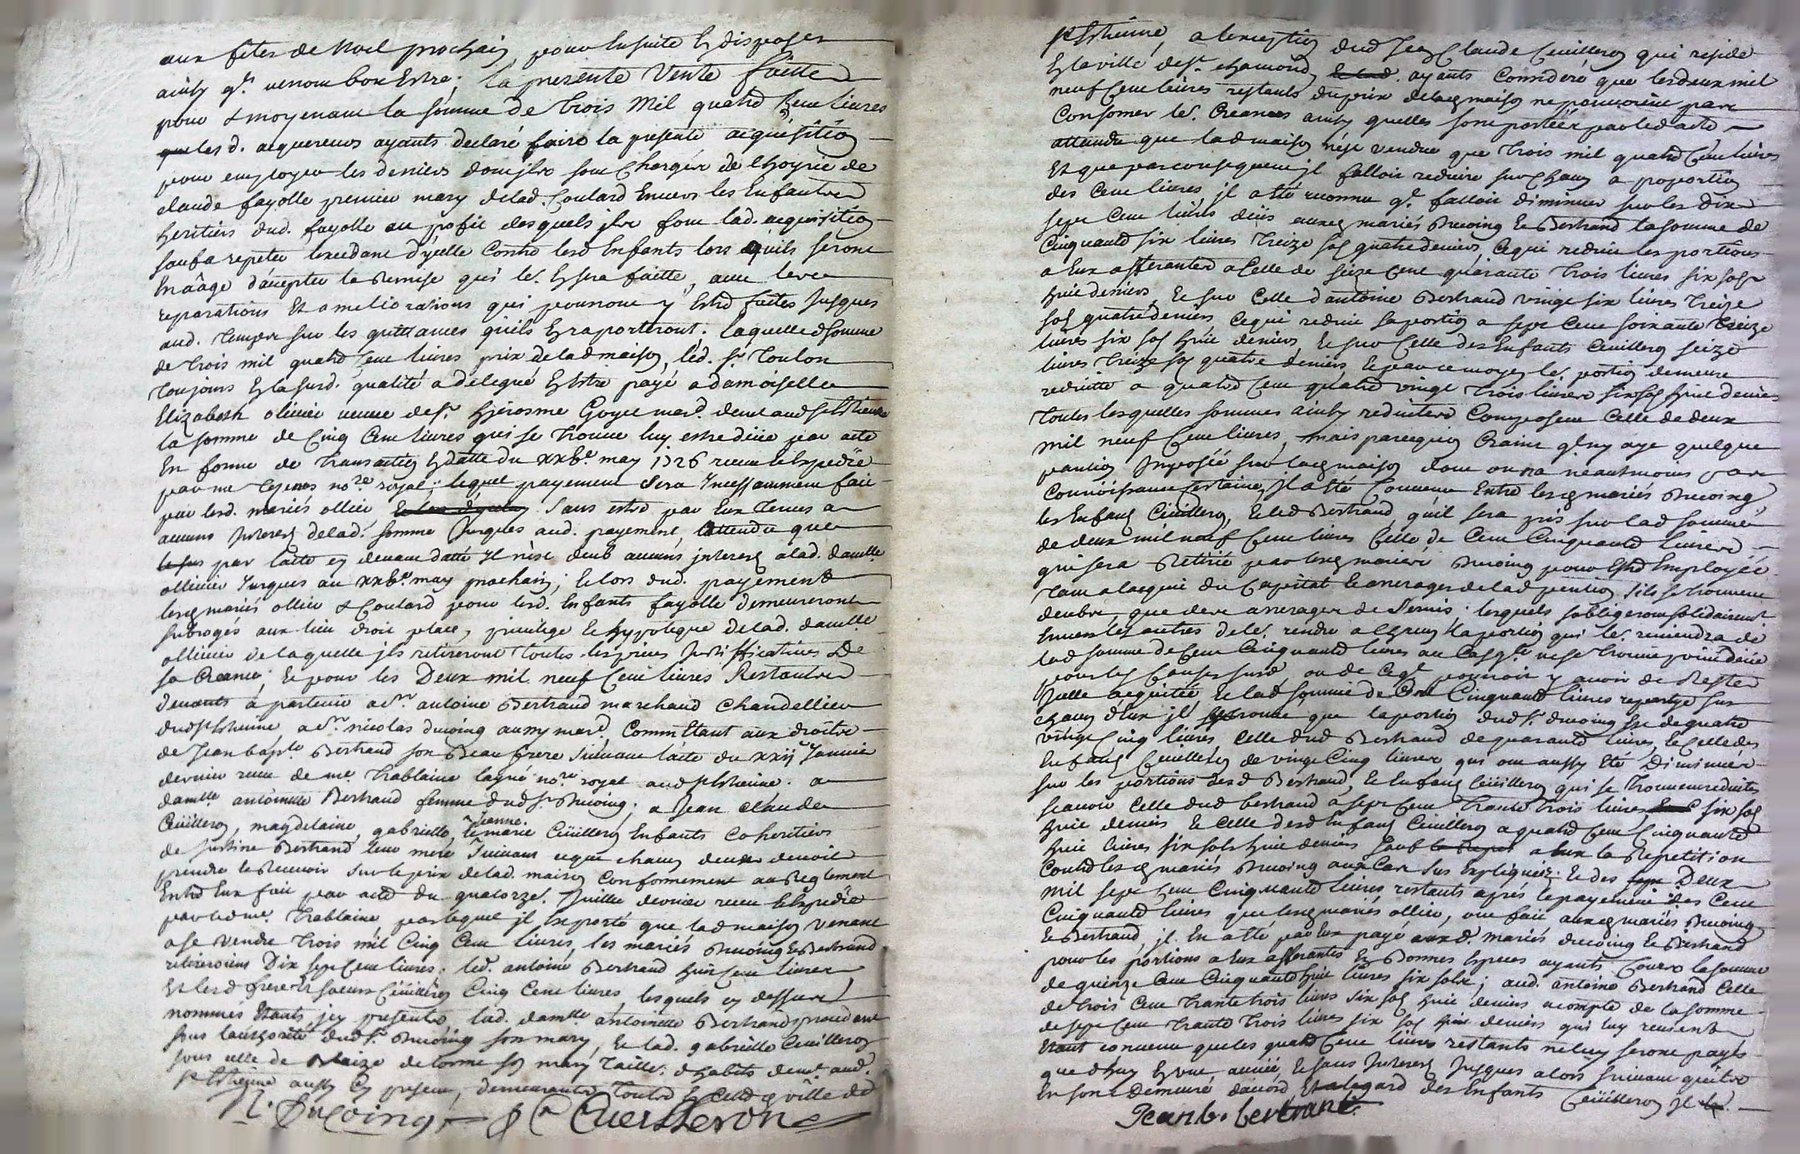 aux fetes de Noel prochain pour ensuite en disposer
ainsy qe. venom bon Estre; la presente Vente faitte
pour & moyenant la somme de trois mil quatre Cent livres
lesd. acquereurs ayants declaré faire la presente acquisition
pour employer les deniers dont ils sont Chargés de l'hoyrie de
claude fayolle premier mary de lad. Coulard Envers les Enfants
heritiers dud. fayolle au profit desquels ils font lad. acquisition
sauf a repeter l'excedant d'ycelle Contre lesd Enfants lors quils seront
En âage d'accepter la Remise qui les. En sera faitte, avec les
reparations Et ameliorations qui pourront y Estre faites Jusques
aud. temps sur les quittances quils En raporteront; laquelle somme
de trois mil quatre Cent livres prix de lad maison, led. sr. Toulon
toujours En lasusd. qualité a delegué Estre payé a damoiselle
Elizabeth olivier veuve de sr. hierosme Goyet mard. demt aud st Etienne
la somme de Cinq Cent livres qui se trouve luy estre düe par acte
En forme de transaction En datte du xxbe. may 1726 receu & Expedié
par me no.re royal; lequel payement sera Incessamment fait
par lesd. mariés ollier sans estre par Eux tenus a
aucuns Interets de lad. somme Jusques aud. payement, attendu que
par l'acte cy devant datté Il n'est deub aucuns interets a lad. damlle.
ollivier Jusques au xxbe. may prochain; & lors dud. payement
lesq mariés ollier & Coulard pour lesd. Enfants fayolle demeureront
subrogés aux lieu droit place, privilege & hypoteque de lad. damlle.
ollivier de laquelle ils retireront toutes les pieces Justifficatives De
sa Creance; Et pour les Deux mil neuf Cent livres Restants
Revenants a partenir a sr. antoine Bertrand marchand Chandellier
dud st Etienne a sr. nicolas ducoing aussy mard. Committant aux droits
de Jean bapte. Bertrand son Beau frere suivant l'acte du xxij Janvier
dernier receu de me. trablaine no.re royal aud st Etienne. a
damlle antoinette Bertrand femme dud sr Ducoing; a Jean claude
Cuilleron, magdelaine, gabrielle, Jeanne & marie Cüilleron Enfants Coheritiers
de Justine Bertrand leur mere suivant ce que chacun deux devoit
prendre & Recevoir sur le prix de lad. maison Conformement au Reglement
Entre Eux fait par acte du quatorze. Juillet dernier receu & Expedié
par led me. trablaine par lequel il Est porté que lad maison venant
a se vendre trois mil Cinq Cent livres, les mariés Ducoing & Bertrand
retireroient Dix sept Cent livres. led. antoine Bertrand huit Cent livres
Et lesd frere & soeurs Cüilleron Cinq Cent livres, lesquels cy dessus
nommés Etants icy presents, lad. damlle. antoinette Bertrand procedant
sous l'authorité dud sr. Ducoing son mary, & lad. gabrielle Cuilleron
sous celle de Blaize delorme son mary Tailler. d'habits demt. aud.
st Etienne aussy Cy present, demeurants toutes En lad ville de
N. Ducoing J C Cuerlleron
st Etienne a lexception dud Jean Claude Cuilleron qui reside
En la ville de st. chamond, ayants Consideré que lesdeux mil
neuf Cent livres restants du prix de lasq maison ne pouvoient pas
Consomer les. Creances ainsy quelles sont portéés par led acte
attendu que lad maison n'est vendue que trois mil quatre Cent livres
Et que par consequent il falloit reduire sur chacun a proportion
des Cent livres il a été reconnu qe. falloit diminuer sur les Dix
sept Cent livres düs auxq mariés Ducoing & Bertrand la somme de
Cinquante six livres treize sols quatre deniers, Ce qui reduit les portions
a Eux afferantes a Celle de seize Cent quarante trois livres six sols
huit deniers, & sur celle d'antoine Bertrand vingt six livres treize
sols quatre deniers Ce qui reduit sa portion a sept Cent soixante treize
livres six sols huit deniers & sur Celle des Enfants Cuilleron seize
livres treize sols quatre deniers, & par ce moyen les. portion demeure
reduitte a quatre Cent quatre vingt trois livres six sols huit deniers
toutes lesquelles sommes ainsy reduittes Composent Celle de deux
mil neuf Cent livres, mais par ce qu'on Craint qe. ny aye quelque
pention Imposéé sur lasq maison dont on na néantmoins pas
Connoissance Certaine, Il a été Convenu Entre lesq mariés Ducoing,
les Enfans Cüilleron, & led Bertrand quil sera pris sur lad somme
de deux mil neuf Cent livres Celle de Cent Cinquante livres
qui sera Retirée par lesq mariés Ducoing pour Estre Employée
tant a lacquit du Capital & arrerages de lad pention, s'ils se trouvent
deubs que des arrerages de servis; lesquels s'obligeront solidairemt
Envers les autres de les. rendre a chacun la portion qui les. reviendra de
lad somme de Cent Cinquante livres au Cas qe. ne se trouve point düe
pour les Causes susd. ou de Ce qe. pourroit y avoir de Reste
Icelle acquitée & lad somme de Cent Cinquante livres repartye sur
chacun d'eux il se trouve que la portion dud sr. ducoing Est de quatre
vingt Cinq livres, Celle dud Bertrand de quarante livres, & Celle des
Enfans Cuilleron de vingt Cinq livres qui ont aussy été Diminués
sur les portions desd Bertrand, & Enfans Cüilleron qui se trouvent reduites
scavoir Celle dud bertrand a sept Cent trante trois livres, six sols
huit deniers & Celle desd Enfans Cuilleron a quatre Cent Cinquante
huit livres six sols huit deniers sauf a Eux la Repetition
Contre lesq mariés Ducoing aux Cas sus expliqués; & des Deux
mil sept Cent Cinquante livres restants aprés le payement des Cent
Cinquante livres que lesq mariés ollier, ont fait auxq mariés Ducoing
& Bertrand, il En a été par Eux payé auxd. mariés ducoing & Bertrand
pour les portions a Eux afferantes En Bonnes Especes ayants Cours la somme
de quinze Cent Cinquante huit livres six sols; aud. antoine Bertrand Celle
de trois Cent trante trois livres six sols huit deniers acompte de la somme
de sept Cent trante trois livres six sols huit deniers qui luy revient
Etant convenu que les quatre Cent livres restants ne luy seront payés
que d'huy En une année, & sans Interets Jusques alors suivant qu'elles
En sont demeuré d'acord Et a legard des Enfants Cüilleron il
Jean b. bertrand